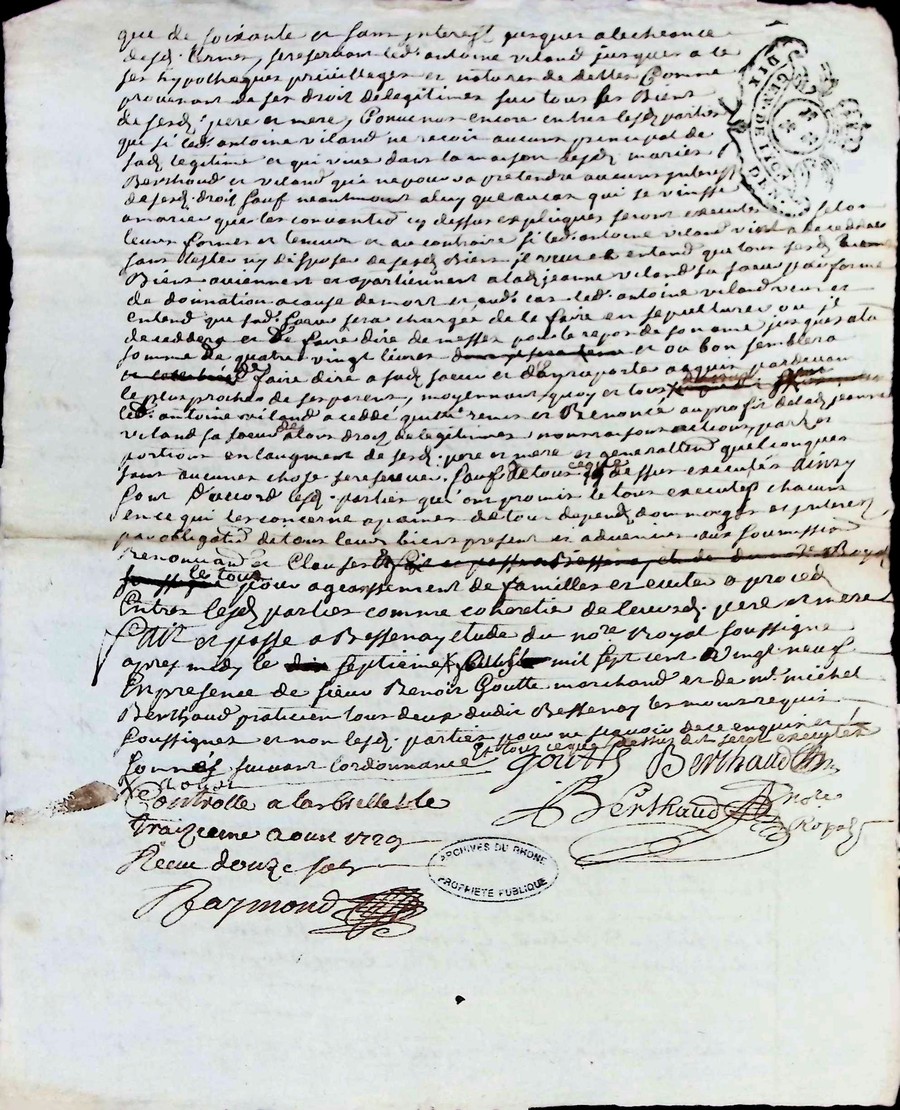 que de soixante et sans interest jusques a lecheance
desd. termes, se reservant led. antoine viland jusques a ce
ses hypotheques privilleges et natures de dettes comme
provenant de ses droit delegitimes sur tous les Biens
de sesd. pere et mere, Convenus encore entre lesd. parties
que si led. antoine viland ne recoit aucuns principal de
sad. legitime et qui vive dans la maison desd. mariés
Berthaud et viland qu'il ne pourra pretendre aucuns interest
de sesd. droit sauf neantmoins a luy que au cas qui se vinsse
a marier que les conventions cy dessus expliqués seront executés selon
leurs formes et teneur et au contraire si led. antoine viland vient a decedder
sans tester ny disposer de sesd. Biens il veut et entend que tous sesd.
Biens aviennent et apartiennent a lad. jeanne viland sa soeur par forme
de dounation a cause de mort et aud. cas led. antoine viland veut et
entend que sad. soeur sera chargée de le faire en sepulturer ou il
deceddera et de faire dire de messes pour le repos de son ame jusques a la
somme de quatre vingt livres et ou bon semblera
de faire dire a sad. soeur et d'en raporter acquis pardevan
le plus proches de ses parens, moyennant quoy et tous
led. antoine viland a ceddé quitté remis et Renoncé au profit de lad. jeanne
viland sa soeur de tous droits delegitimes noms raisons actions, parts et
portions en laugment de sesd. pere et mere et generallement quelconques
sans aucunes chose se reserver. sauf de tous ce que dessus executés ainsy
sont d'accord lesd. parties qu'ont promis le tous executer chacuns
en ce qui les concerne a paines de tous depens dommages et interest
par obligation de tous leurs biens present et advenir aux soumission
Renonciation et Clauses
le tous pour agencement de familles et eviter a proced
Entres lesd. parties comme coheretie de leursd. pere et mere
fait et passé a Bessenay etude du nore Royal soussigne
apres midy le septieme mil sept cent vingt neuf
En presence de sieur Benoit Goutte marchand et de me. michel
Berthaud praticien tous deux dudit Bessenay temoins requis
soussignes et non lesd. parties pour ne scavoir de ce enquises et
sommés suivant lordonnance et tous ce que dessus dit sera executés
Goutte Berthaud
Controllé a labresle le
traizieme aout 1729
Recu douze sols
Berthaud nore Royal
Raymond
ARCHIVES DU RHONE
PROPRIÉTÉ PUBLIQUE